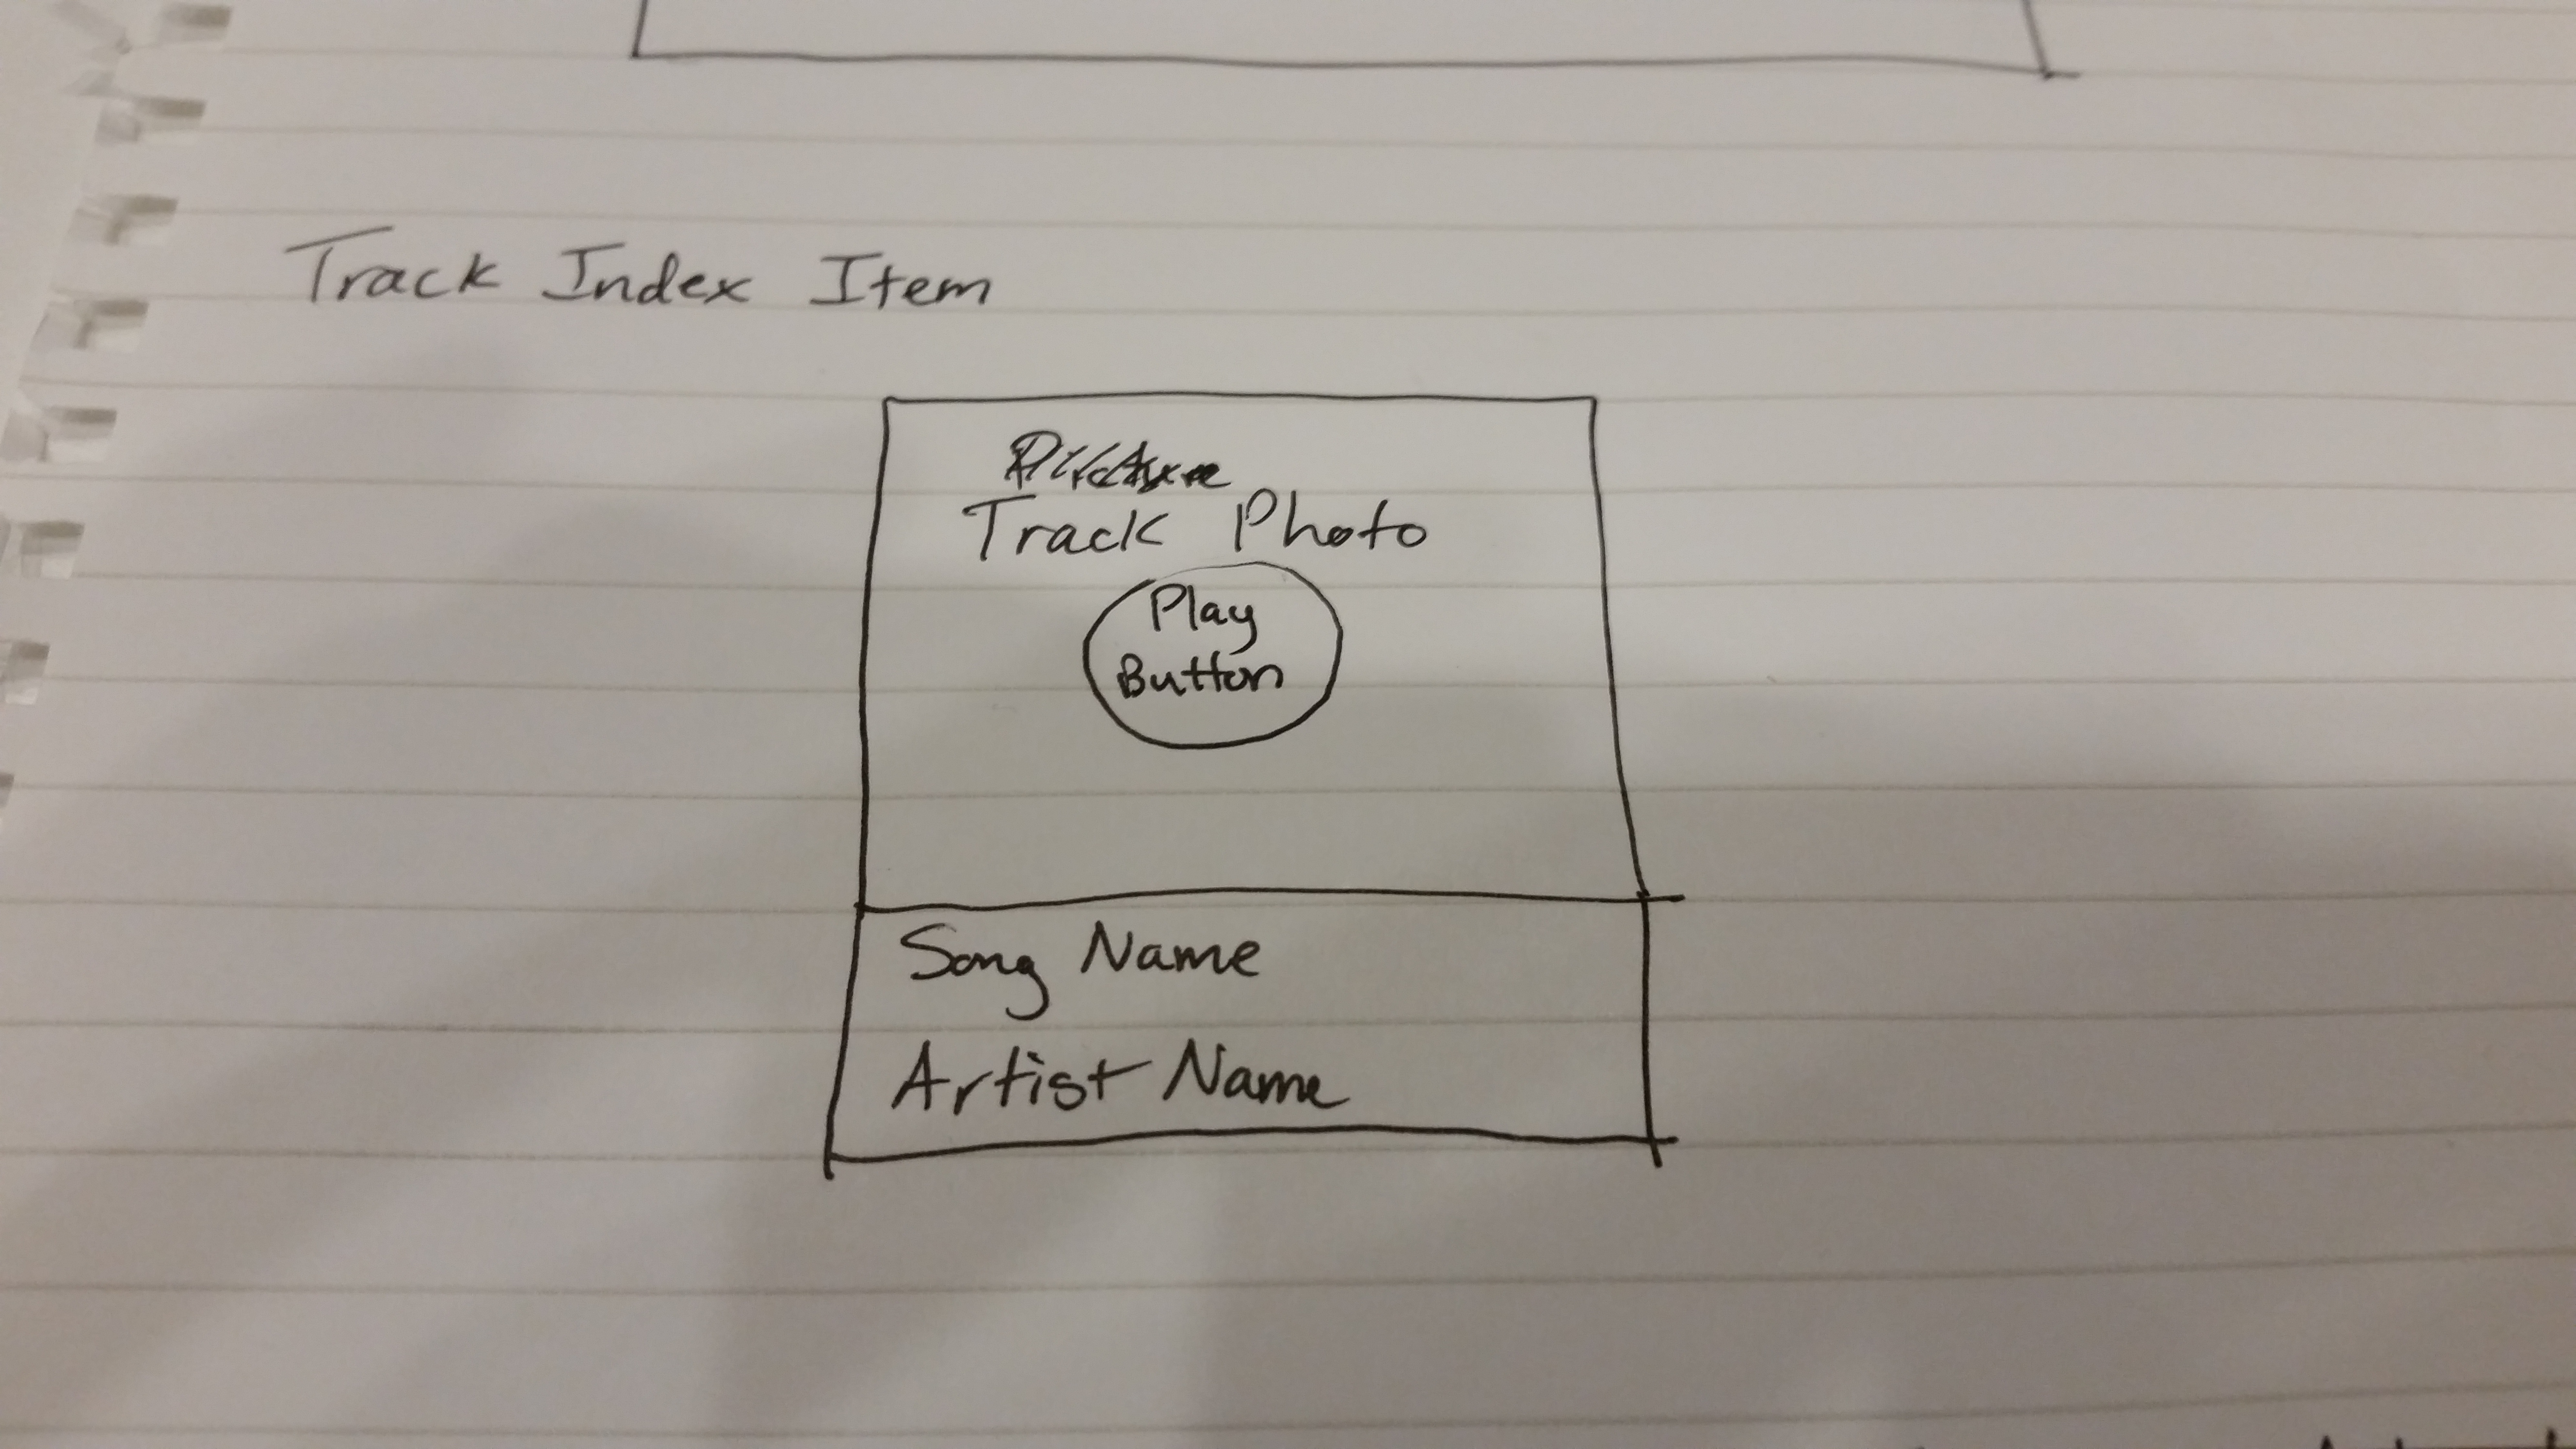 Track Index Item
Track Photo
Play
Button
Song Name
Artist Name